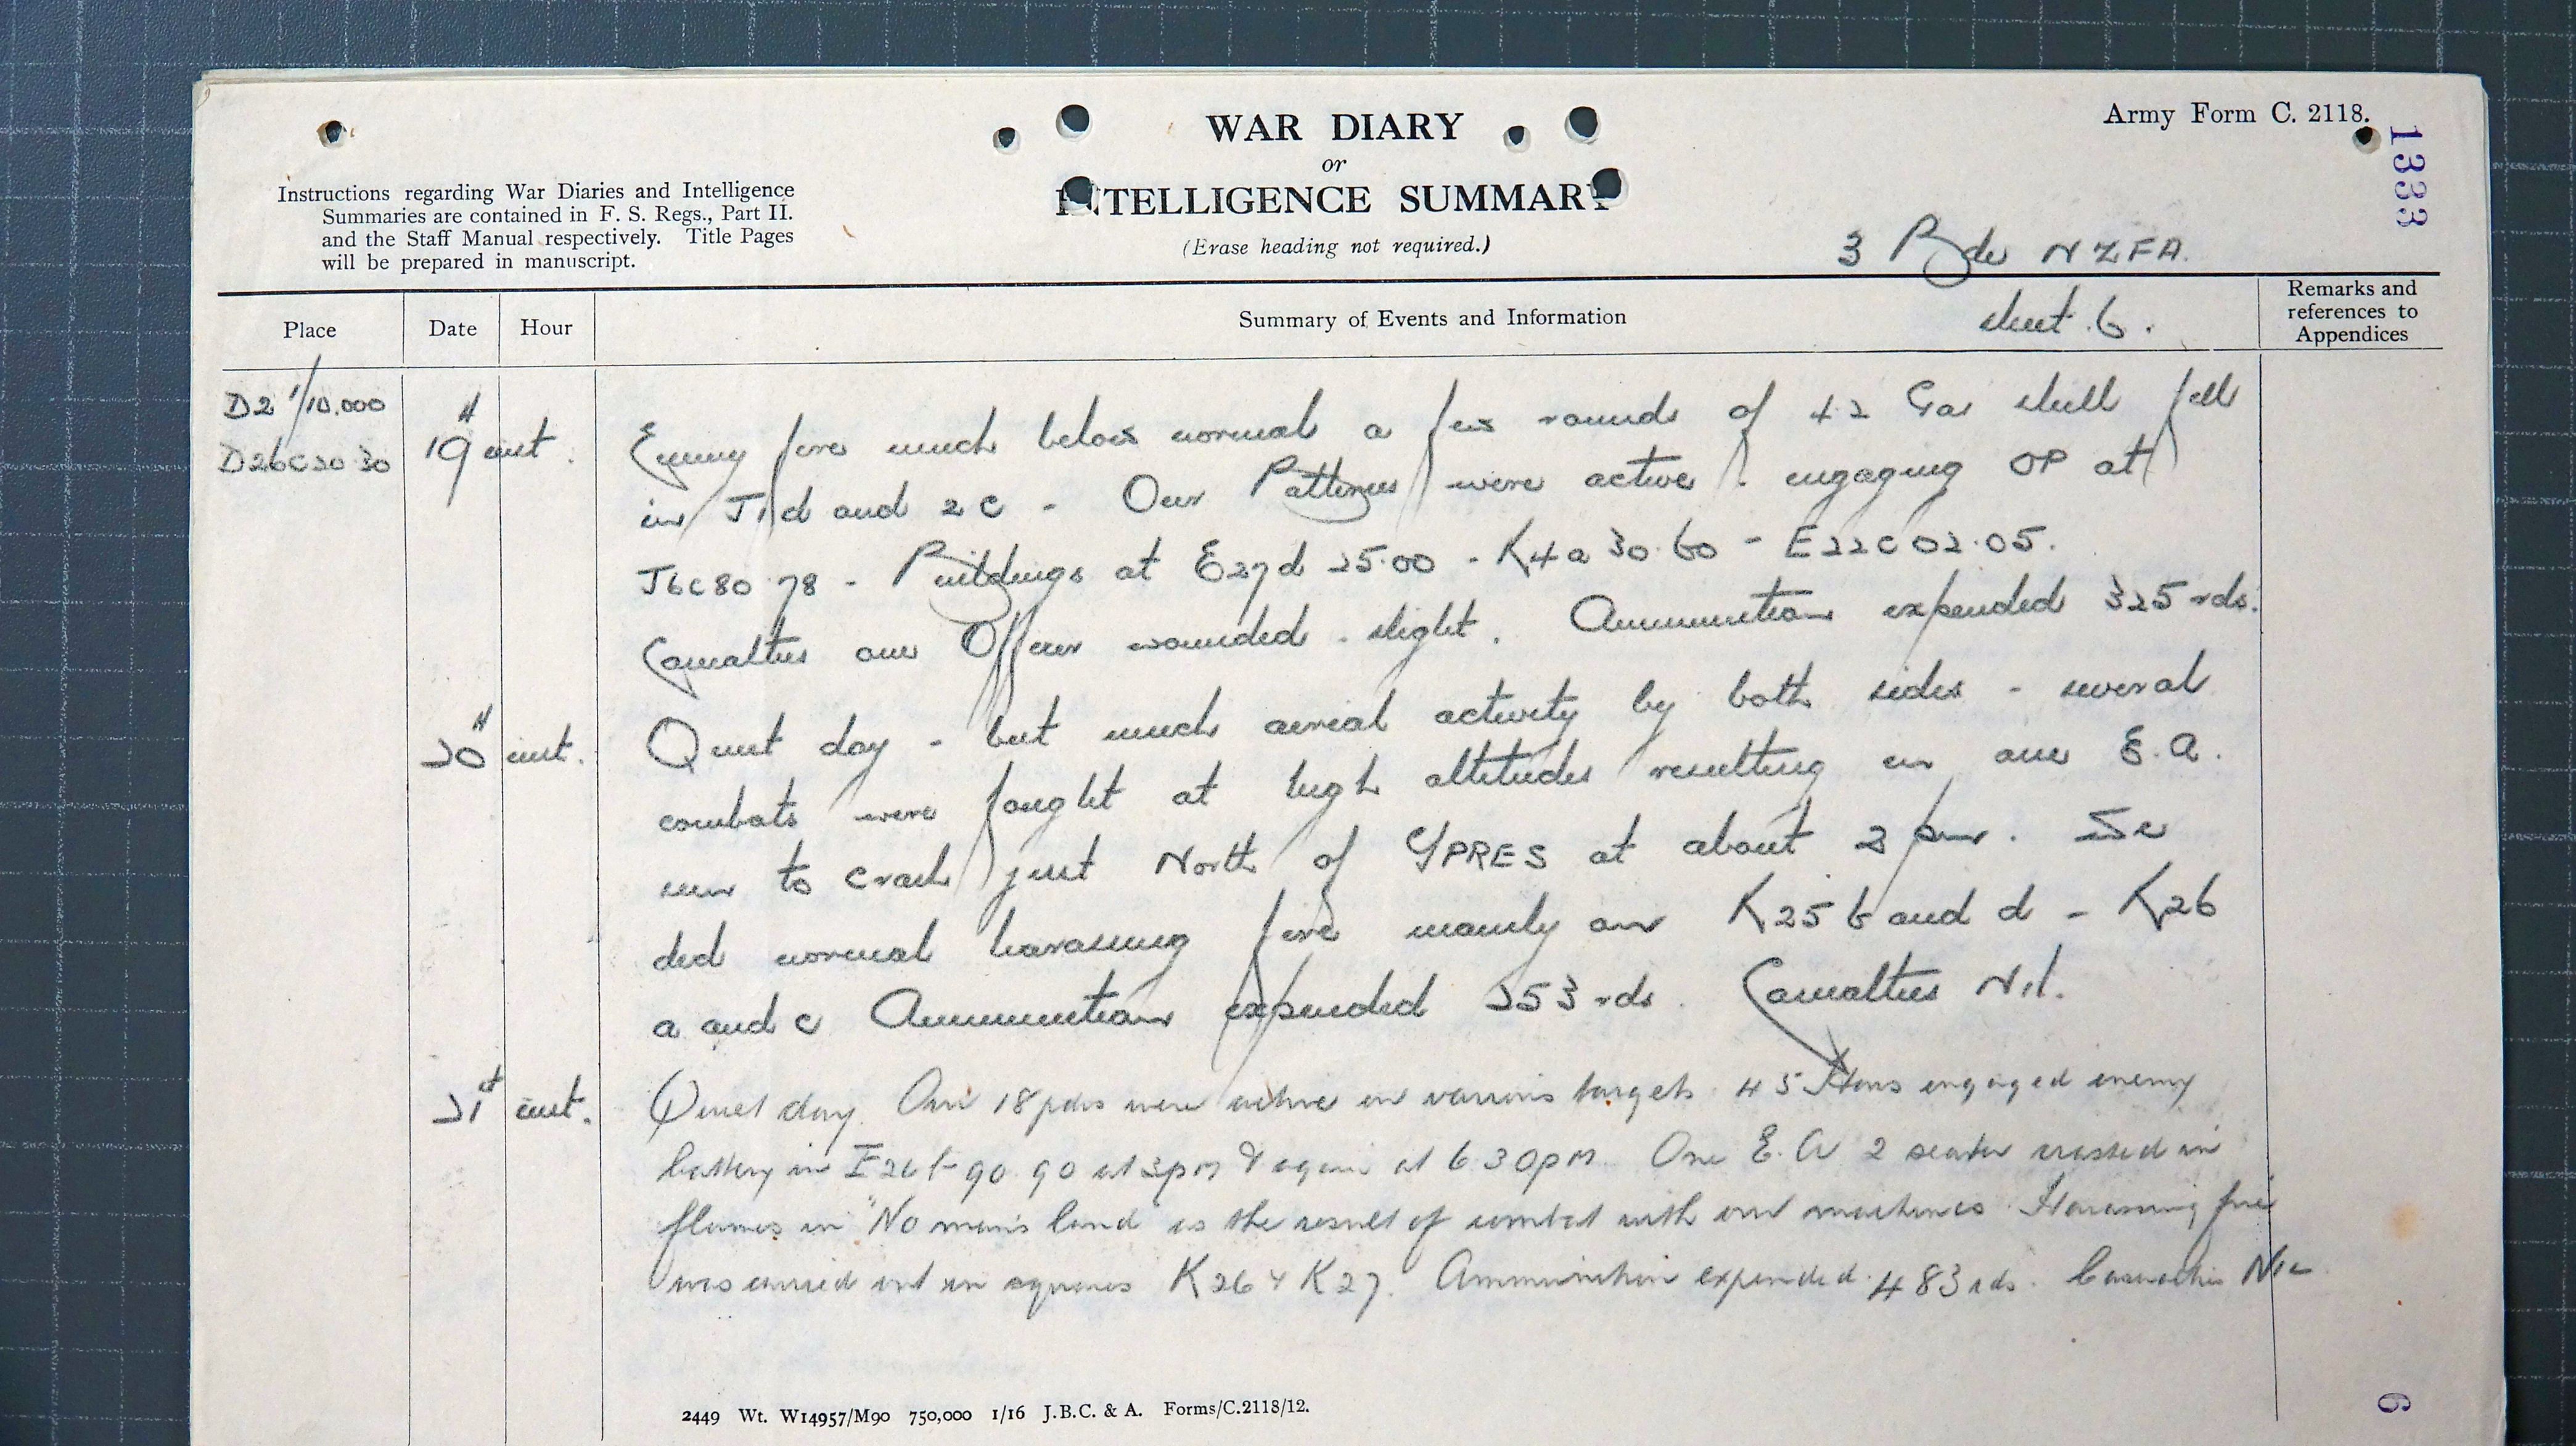 Army Form C. 2118.
1333
WAR DIARY
or
INTELLIGENCE SUMMARY
(Erase heading not required.)
Instructions regarding War Diaries and Intelligence
Summaries are contained in F. S. Regs., Part II.
and the Staff Manual respectively. Title Pages
will be prepared in manuscript.
3 Bde NZFA.
sheet 6.
Place
Date
Hour
Summary of Events and Information
Remarks and
references to
Appendices
D2 1/10,000
D26c20.30
19th inst.
Enemy fire much below normal a few rounds of 42 Gas shell fell
in J1d and 2c - Our Batteries were active. engaging OP at
J6c80.78 - Buildings at E27d 25.00 - K4a 30.60 - E22c02.05.
Casualties one Officer wounded - slight. Ammunition expended 325 rds.
20th inst.
Quiet day - but much aerial activity by both sides - several
combats were fought at high altitudes resulting in one E.A.
to crash just North of YPRES at about 2 pm.
ded normal harassing fire mainly on K25 b and d - K26
a and c Ammunition expended 253 rds. Casualties Nil.
21st inst.
Quiet day. Our 18 pdrs were active on various targets. 45 Hows engaged enemy
battery in E26b 90.90 at 3pm & again at 6.30pm. One E.A 2 seater crashed in
flames in "No man's land" as the result of combat with our machines. Harassing fire
was carried out on squares K26 & K27. Ammunition expended 483 rds. Casualties Nil
2449 Wt. W14957/M90 750,000 1/16 J.B.C. & A. Forms/C.2118/12.
6